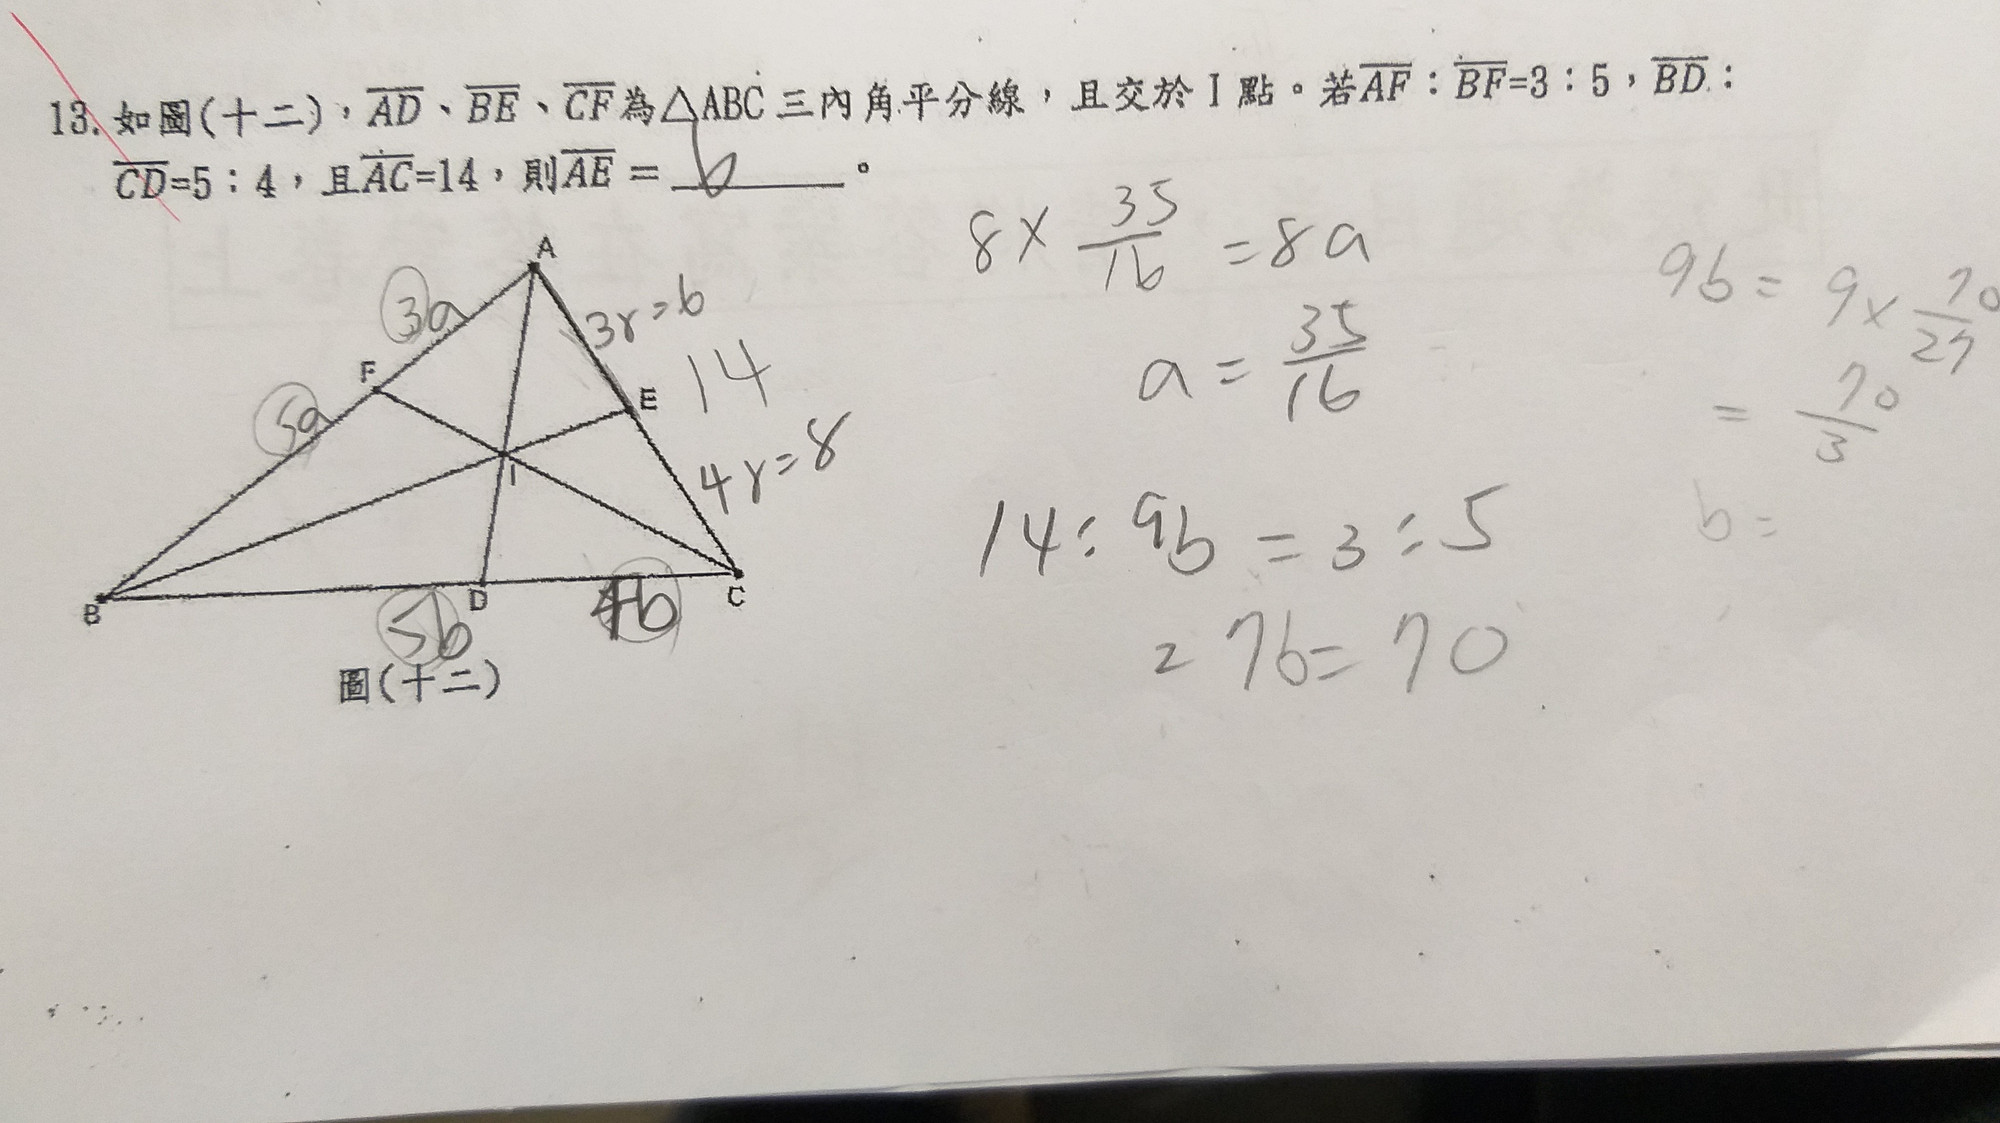 13. 如圖(十二)，AD、BE、CF為△ABC 三內角平分線，且交於 I 點。若AF：BF=3：5，BD：
CD=5：4，且AC=14，則AE = 6 。
A
3a
3r=6
F
14
E
5a
I
4r=8
B
D
C
5b
4b
圖(十二)
8 × 35/16 = 8a
a = 35/16
14 : 9b = 3 : 5
= 27b = 70
9b = 9 × 70/27
= 70/3
b =